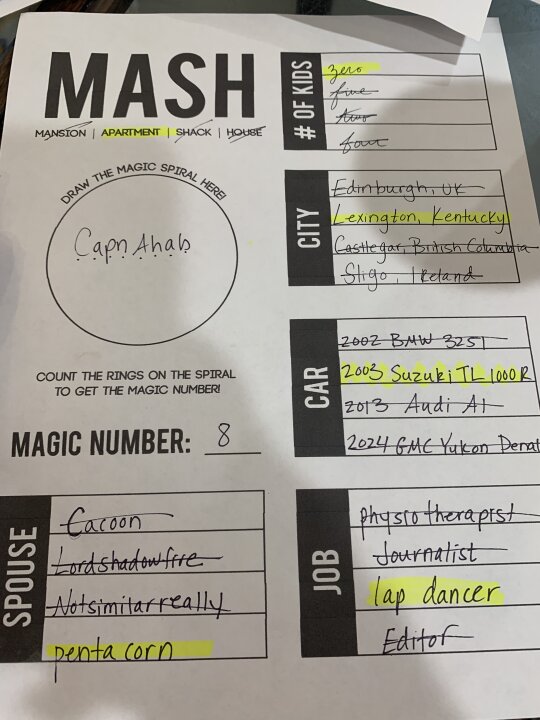 MASH
MANSION | APARTMENT | SHACK | HOUSE
DRAW THE MAGIC SPIRAL HERE!
Capn Ahab
COUNT THE RINGS ON THE SPIRAL
TO GET THE MAGIC NUMBER!
MAGIC NUMBER: 8
# OF KIDS
zero
five
two
four
CITY
Edinburgh, UK
Lexington, Kentucky
Castlegar, British Columbia
Sligo, Ireland
CAR
2002 BMW 325I
2003 Suzuki TL 1000R
2013 Audi A1
2024 GMC Yukon Denal
SPOUSE
Cacoon
Lordshadowfire
Notsimilarreally
pentacorn
JOB
physiotherapist
Journalist
lap dancer
Editor